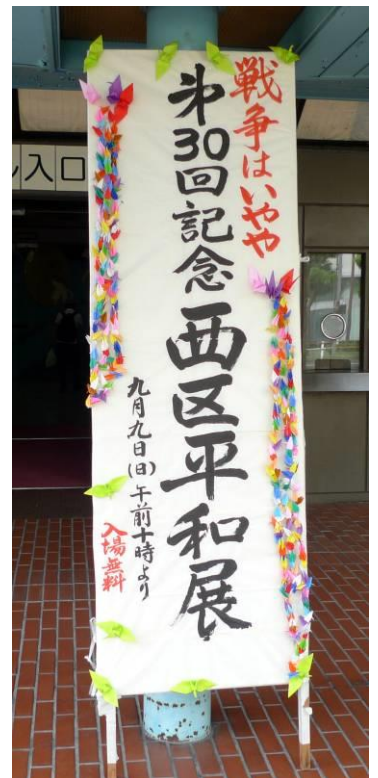 戦争はいやや
第30回記念 西区平和展
九月九日(日)午前十時より
入場無料
ル入口